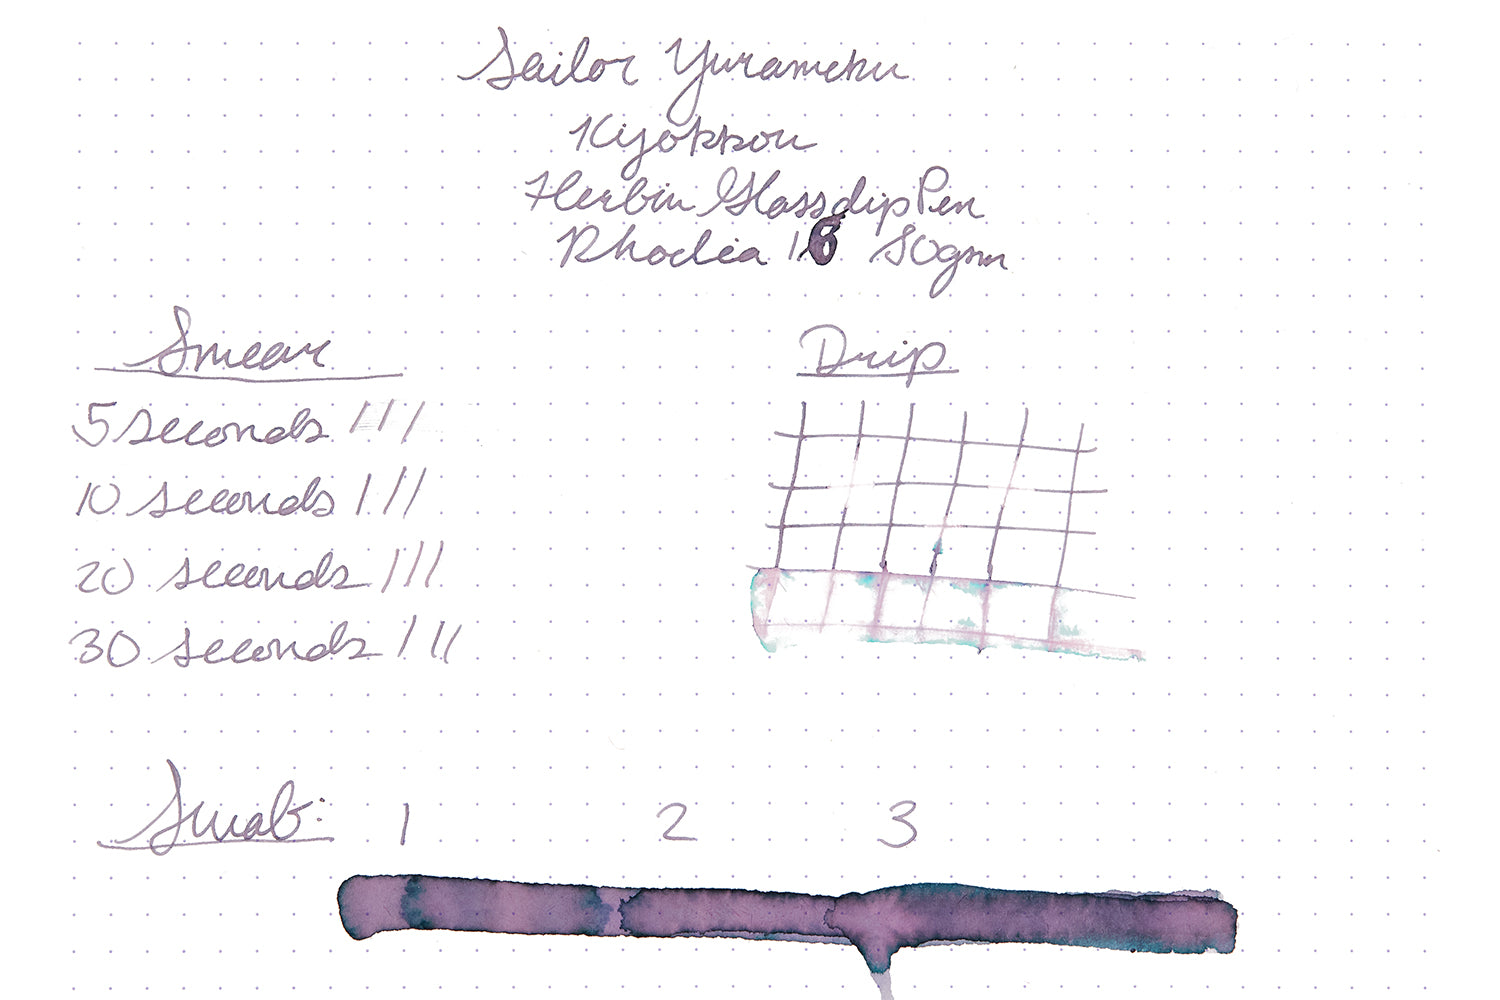 Sailor Yurameku
Kyokkou
Herbin Glass dip Pen
Rhodia 16 80gsm
Smear
5 seconds
10 seconds
20 seconds
30 seconds
Drip
Swab: 1 2 3